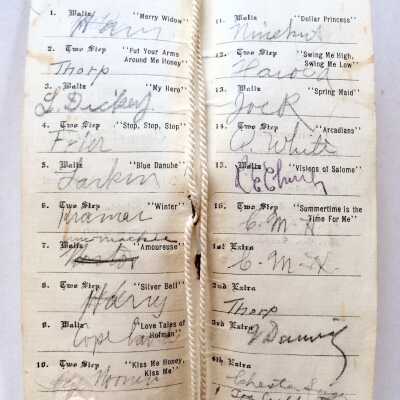 1. Waltz "Merry Widow"
Harry
2. Two Step "Put Your Arms
Around Me Honey"
Thorp
3. Waltz "My Hero"
L. Dickey
4. Two Step "Stop, Stop, Stop"
5. Waltz "Blue Danube"
Larkin
6. Two Step "Winter"
Kramer
7. Waltz "Amoureuse"
8. Two Step "Silver Bell"
Harry
9. Waltz "Love Tales of
Hoffman"
Copeland
10. Two Step "Kiss Me Honey,
Kiss Me"
11. Waltz "Dollar Princess"
12. Two Step "Swing Me High,
Swing Me Low"
Harold
13. Waltz "Spring Maid"
Jack
14. Two Step "Arcadians"
White
15. Waltz "Visions of Salome"
Church
16. Two Step "Summertime is the
Time For Me"
C. M. H
1st Extra
C. M. H
2nd Extra
Thorp
3rd Extra
4th Extra
Chester